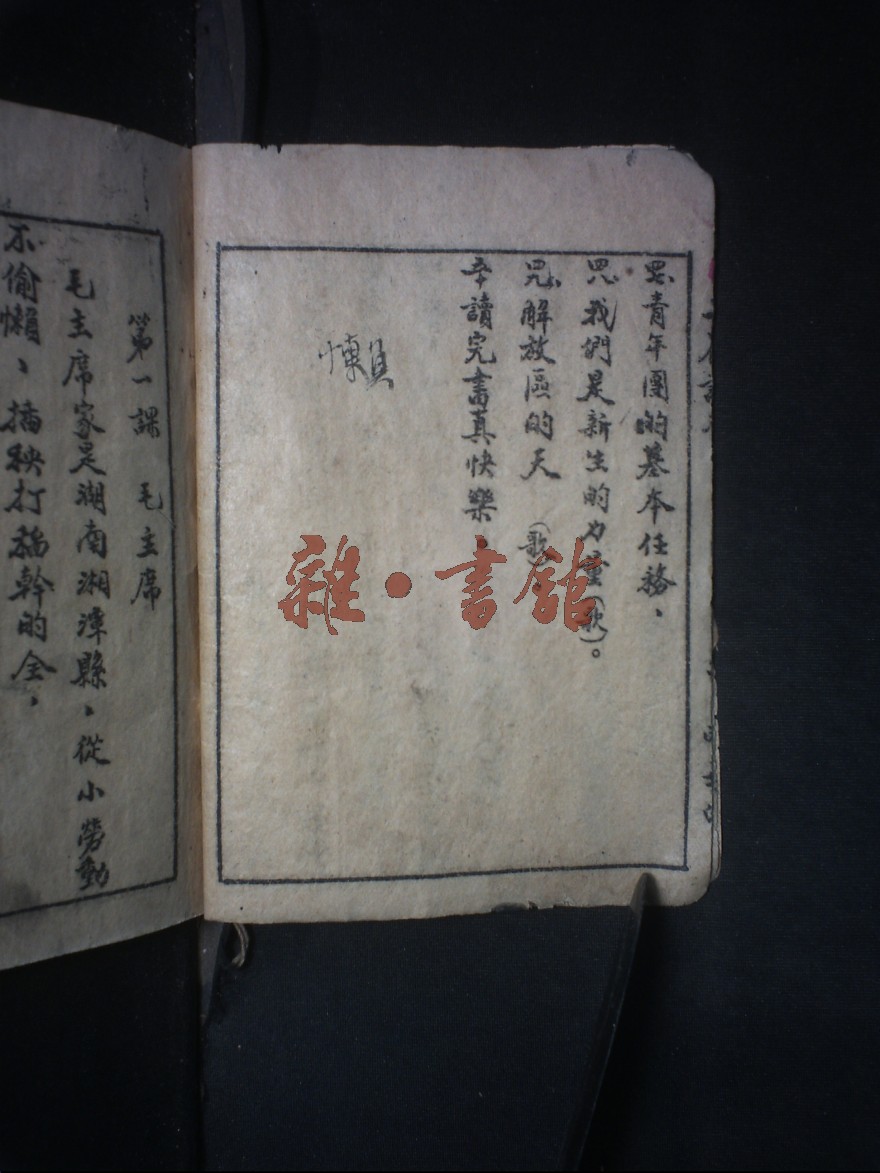 罒七、青年團的基本任務、
罒八、我們是新生的力量(歌)。
罒九、解放區的天 (歌)。
五十讀完書真快樂。
懶
雜·書館
第一課 毛主席
毛主席家是湖南湘潭縣、從小勞動
不偷懶、插秧打稻幹的全，